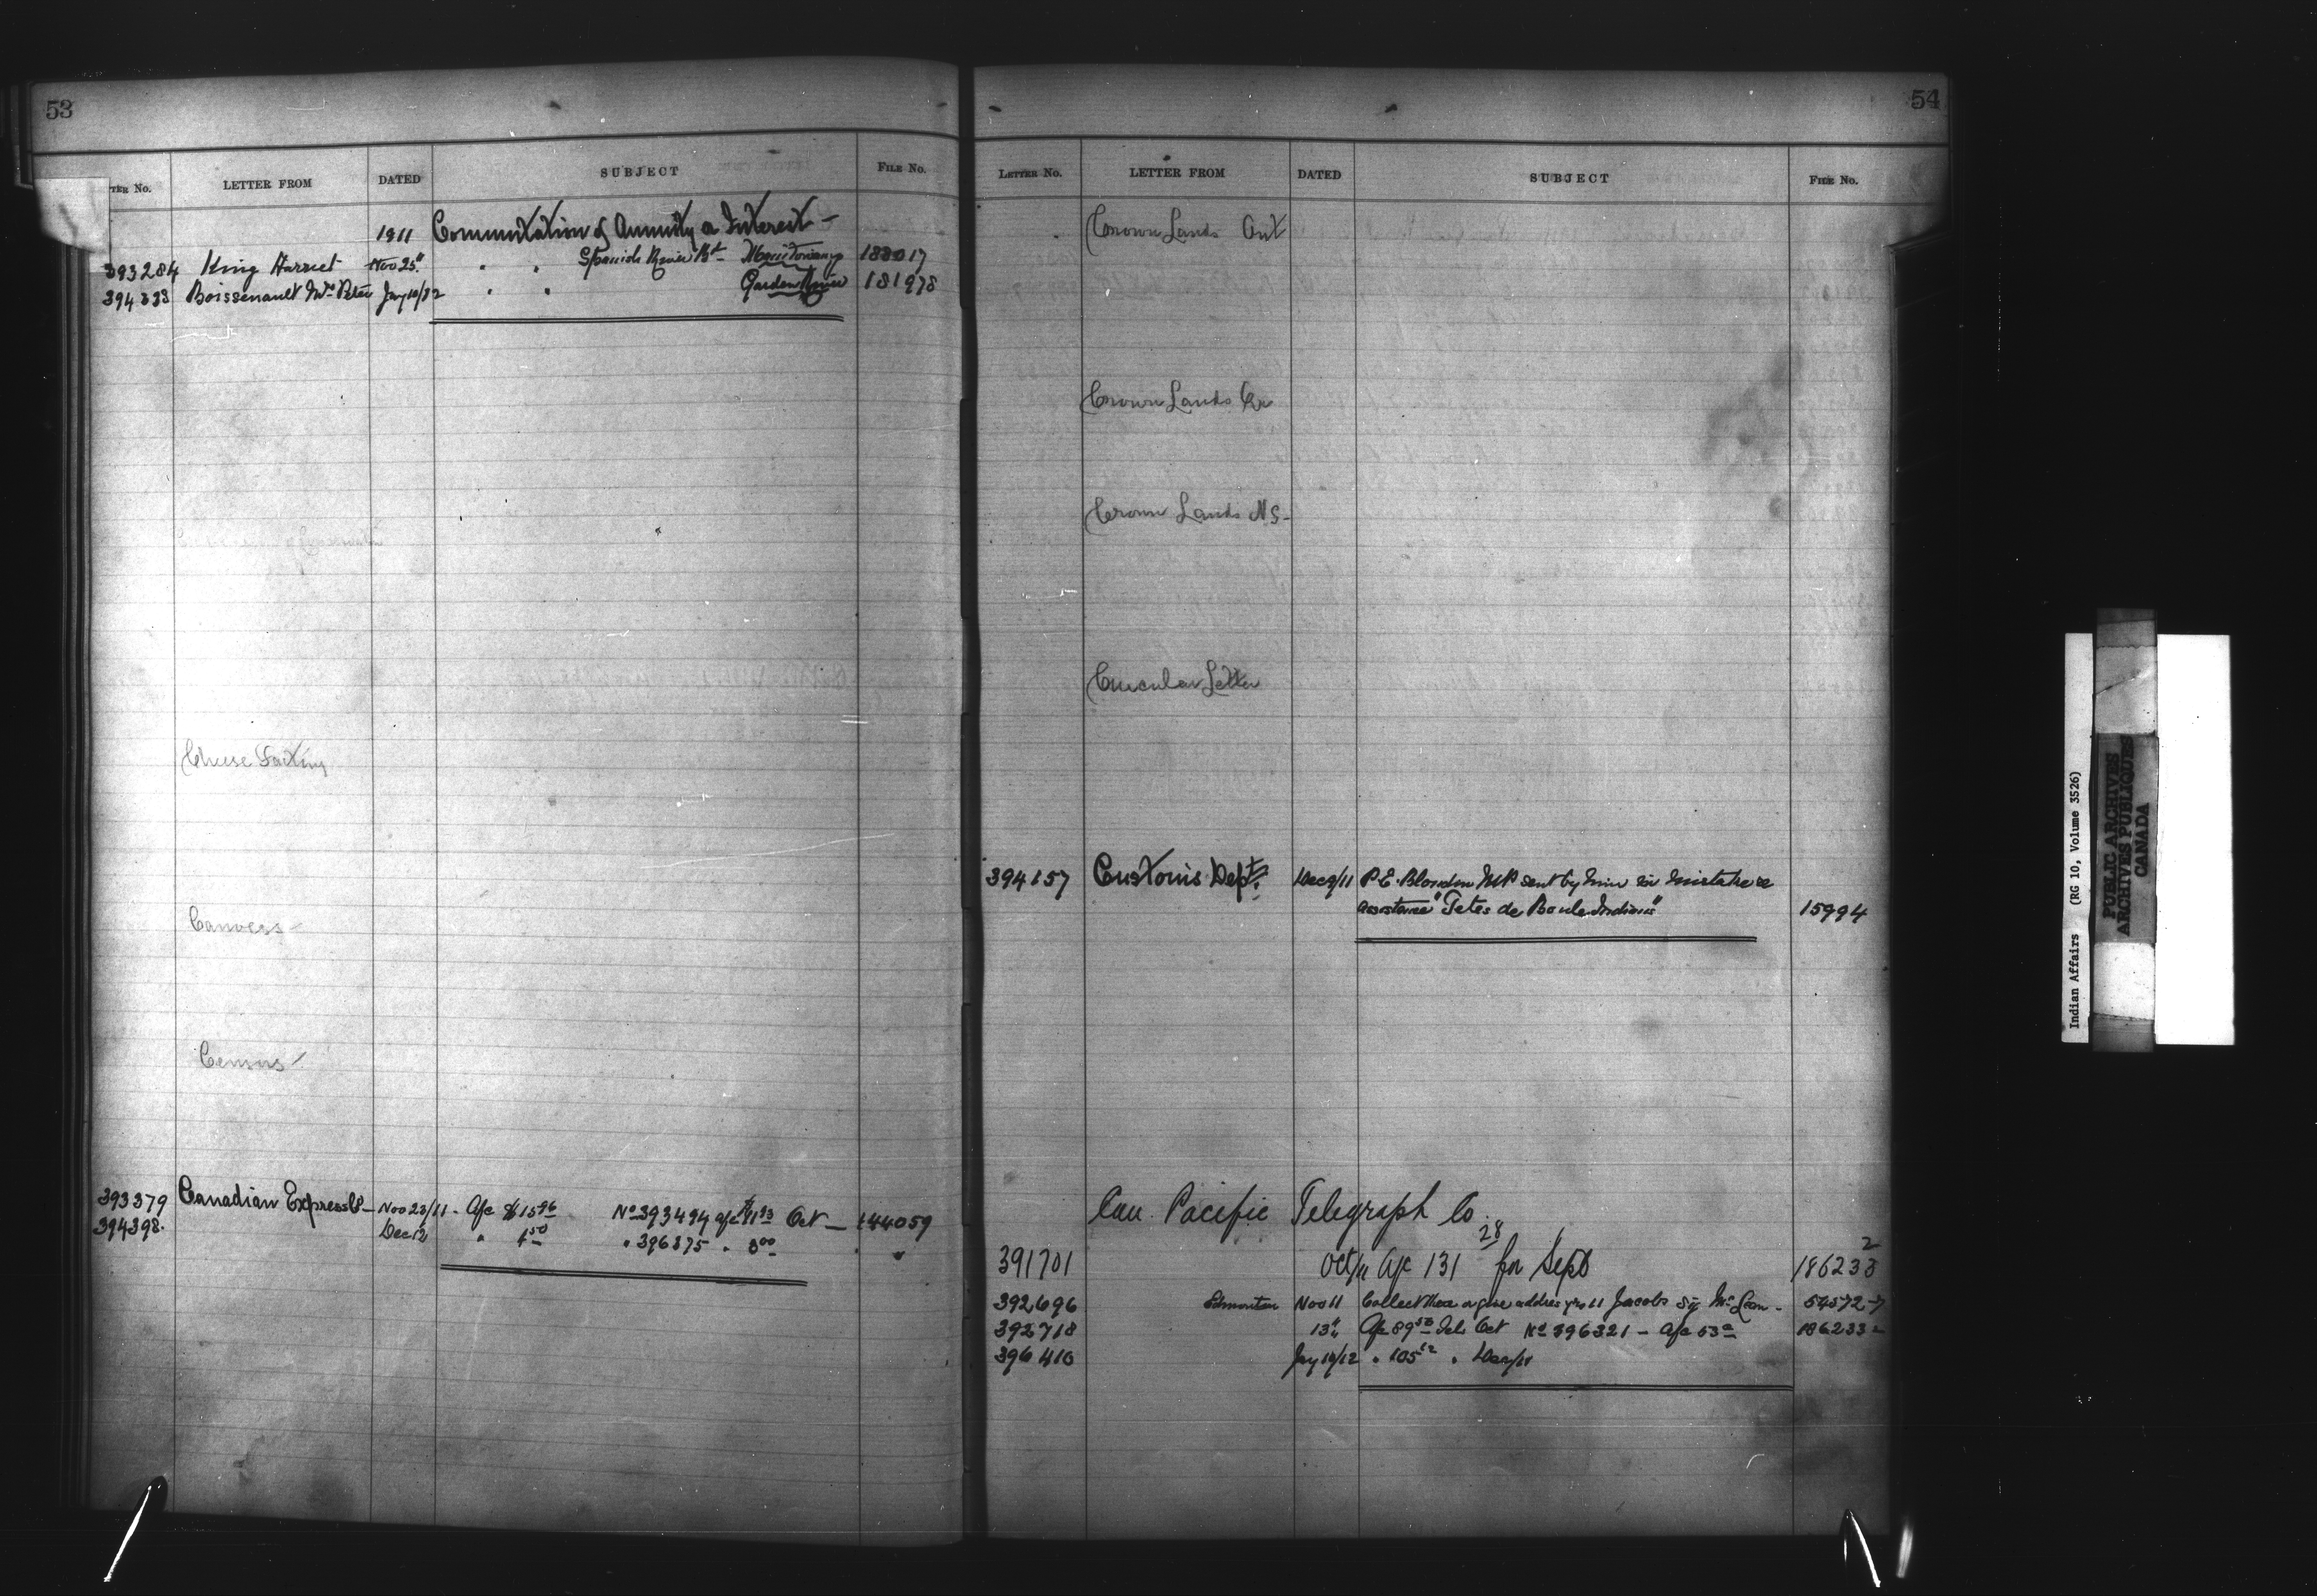 53
TER No. LETTER FROM DATED SUBJECT FILE No.
1911 Commutation of Annuity & Interest —
393284 King Harriet Nov 25" " " Spanish River Bd Manitowaning 183017
394333 Boissenault Mrs Peter Jay 10/12 " " Garden River 181978
Cheese Factory
Canvass
Census
393379 Canadian Express Co — Nov 23/11 - A/c $15 96 No 393494 a/c $11 93 Oct — 144059
394398. Dec 12 " 4 50 " 396375 " 3 00 "
54
LETTER No. LETTER FROM DATED SUBJECT FILE No.
Crown Lands Ont
Crown Lands Qu
Crown Lands N S -
Circular Letter
394157 Customs Dept. Dec 9/11 P. E. Blondin M P sent by him in mistake re
assistance "Tetes de Boule Indians" 15994
Can. Pacific Telegraph Co.
391701 Oct/11 A/c 131 28 for Sept 186233 2
392696 Edmonton Nov 11 Collect these or give address Jacobs Sig McLean - 54572-7
392718 13" A/c 89 53 Tels Oct No 396321 — A/c 53 186233 2
396410 Jay 10/12 " 105 12 " Dec/11
Indian Affairs (RG 10, Volume 3526)
PUBLIC ARCHIVES
ARCHIVES PUBLIQUES
CANADA